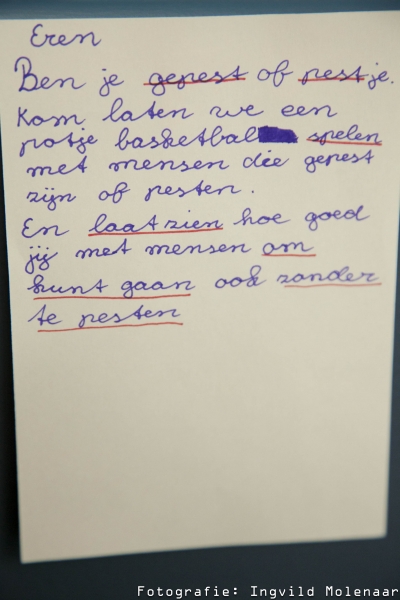 Eren
Ben je gepest of pest je.
Kom laten we een
potje basketbal spelen
met mensen die gepest
zijn of pesten.
En laat zien hoe goed
jij met mensen om
kunt gaan ook zonder
te pesten
Fotografie: Ingvild Molenaar